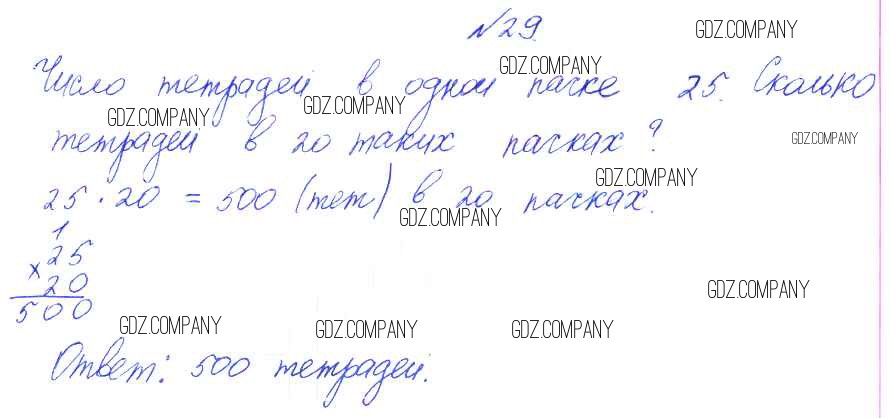 №29.
GDZ.COMPANY
Число тетрадей в одной пачке 25. Сколько
GDZ.COMPANY
GDZ.COMPANY GDZ.COMPANY
тетрадей в 20 таких пачках?
GDZ.COMPANY
25 · 20 = 500 (тет) в 20 пачках.
GDZ.COMPANY
GDZ.COMPANY
1
× 25
20
500
GDZ.COMPANY
GDZ.COMPANY GDZ.COMPANY GDZ.COMPANY
Ответ: 500 тетрадей.